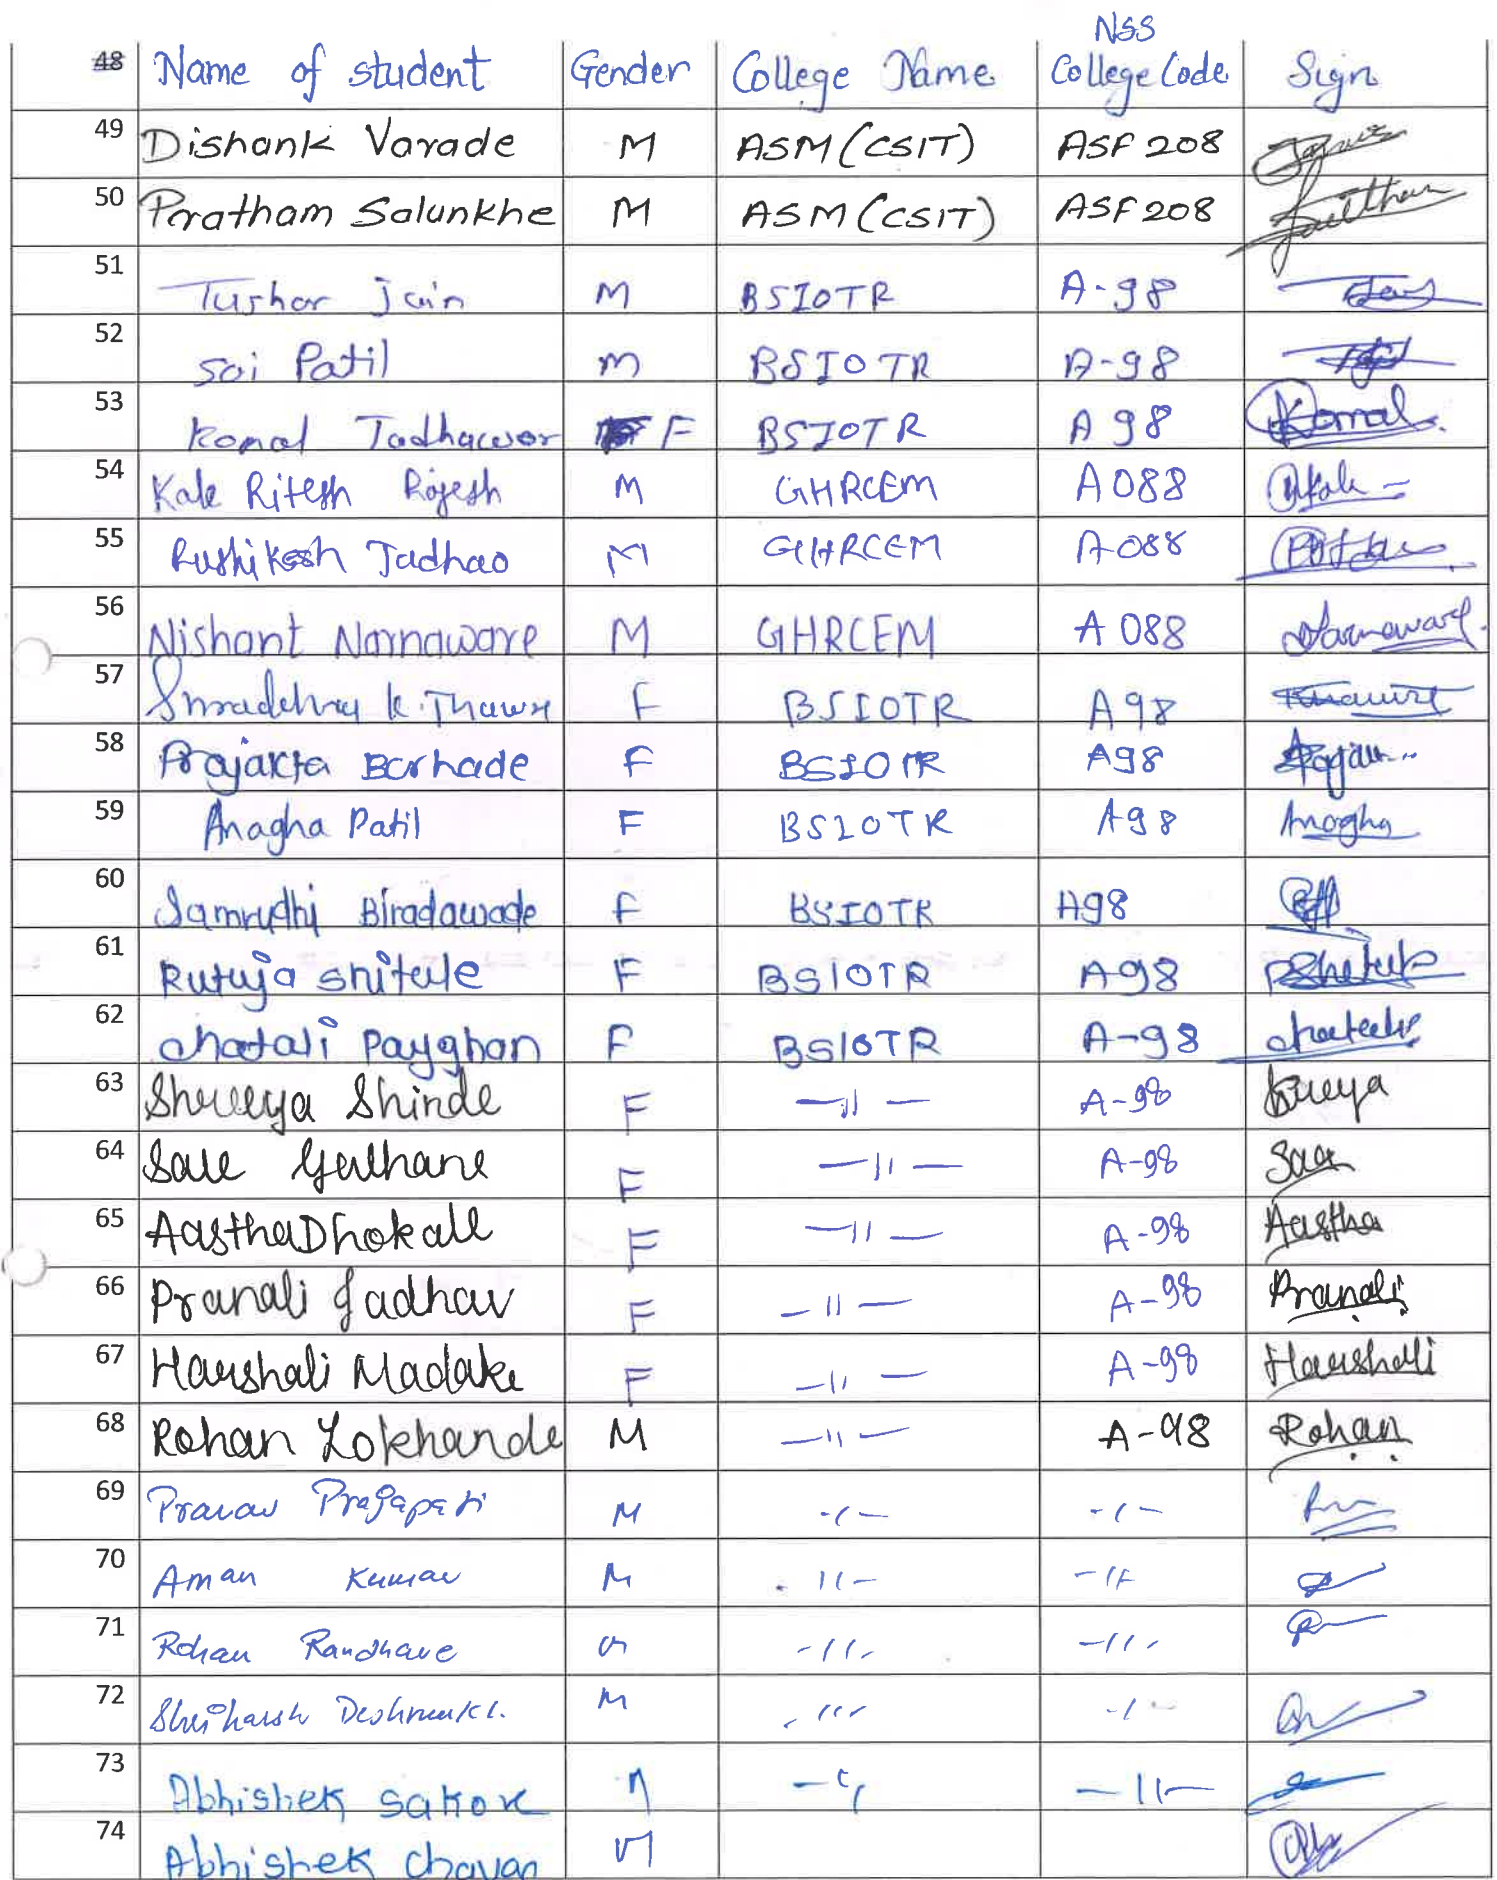 48 Name of student Gender College Name NSS College Code Sign
49 Dishank Varade M ASM (CSIT) ASF 208
50 Pratham Salunkhe M ASM (CSIT) ASF 208
51 Tushar Jain M BSIOTR A-98
52 Sai Patil M BSIOTR A-98
53 Komal Jadhawar F BSIOTR A 98 Komal
54 Kale Ritesh Rajesh M GHRCEM A 088
55 Rushikesh Jadhao M GHRCEM A-088
56 Nishant Narnaware M GHRCEM A 088 Narnaware
57 Shraddha K. Thawre F BSIOTR A 98
58 Prajakta Borhade F BSIOTR A98
59 Anagha Patil F BSIOTR A98 Anagha
60 Samrudhi Biradawade F BSIOTR A98
61 Rutuja shitule F BSIOTR A98
62 chaitali Payghan F BSIOTR A-98
63 Shreeya Shinde F —11— A-98 Shreeya
64 Saee Gulhane F —11— A-98 Saee
65 Aastha Dhokale F —11— A-98 Aastha
66 Pranali Jadhav F —11— A-98 Pranali
67 Harshali Madake F —11— A-98 Harshali
68 Rohan Lokhande M —11— A-98 Rohan
69 Pranav Prajapati M -1- -1-
70 Aman Kumar M 11- -11
71 Rohan Randhave M -11- -11-
72 Shriharsh Deshmukh. M -1-
73 Abhishek sakore M —11—
74 Abhishek chavan M